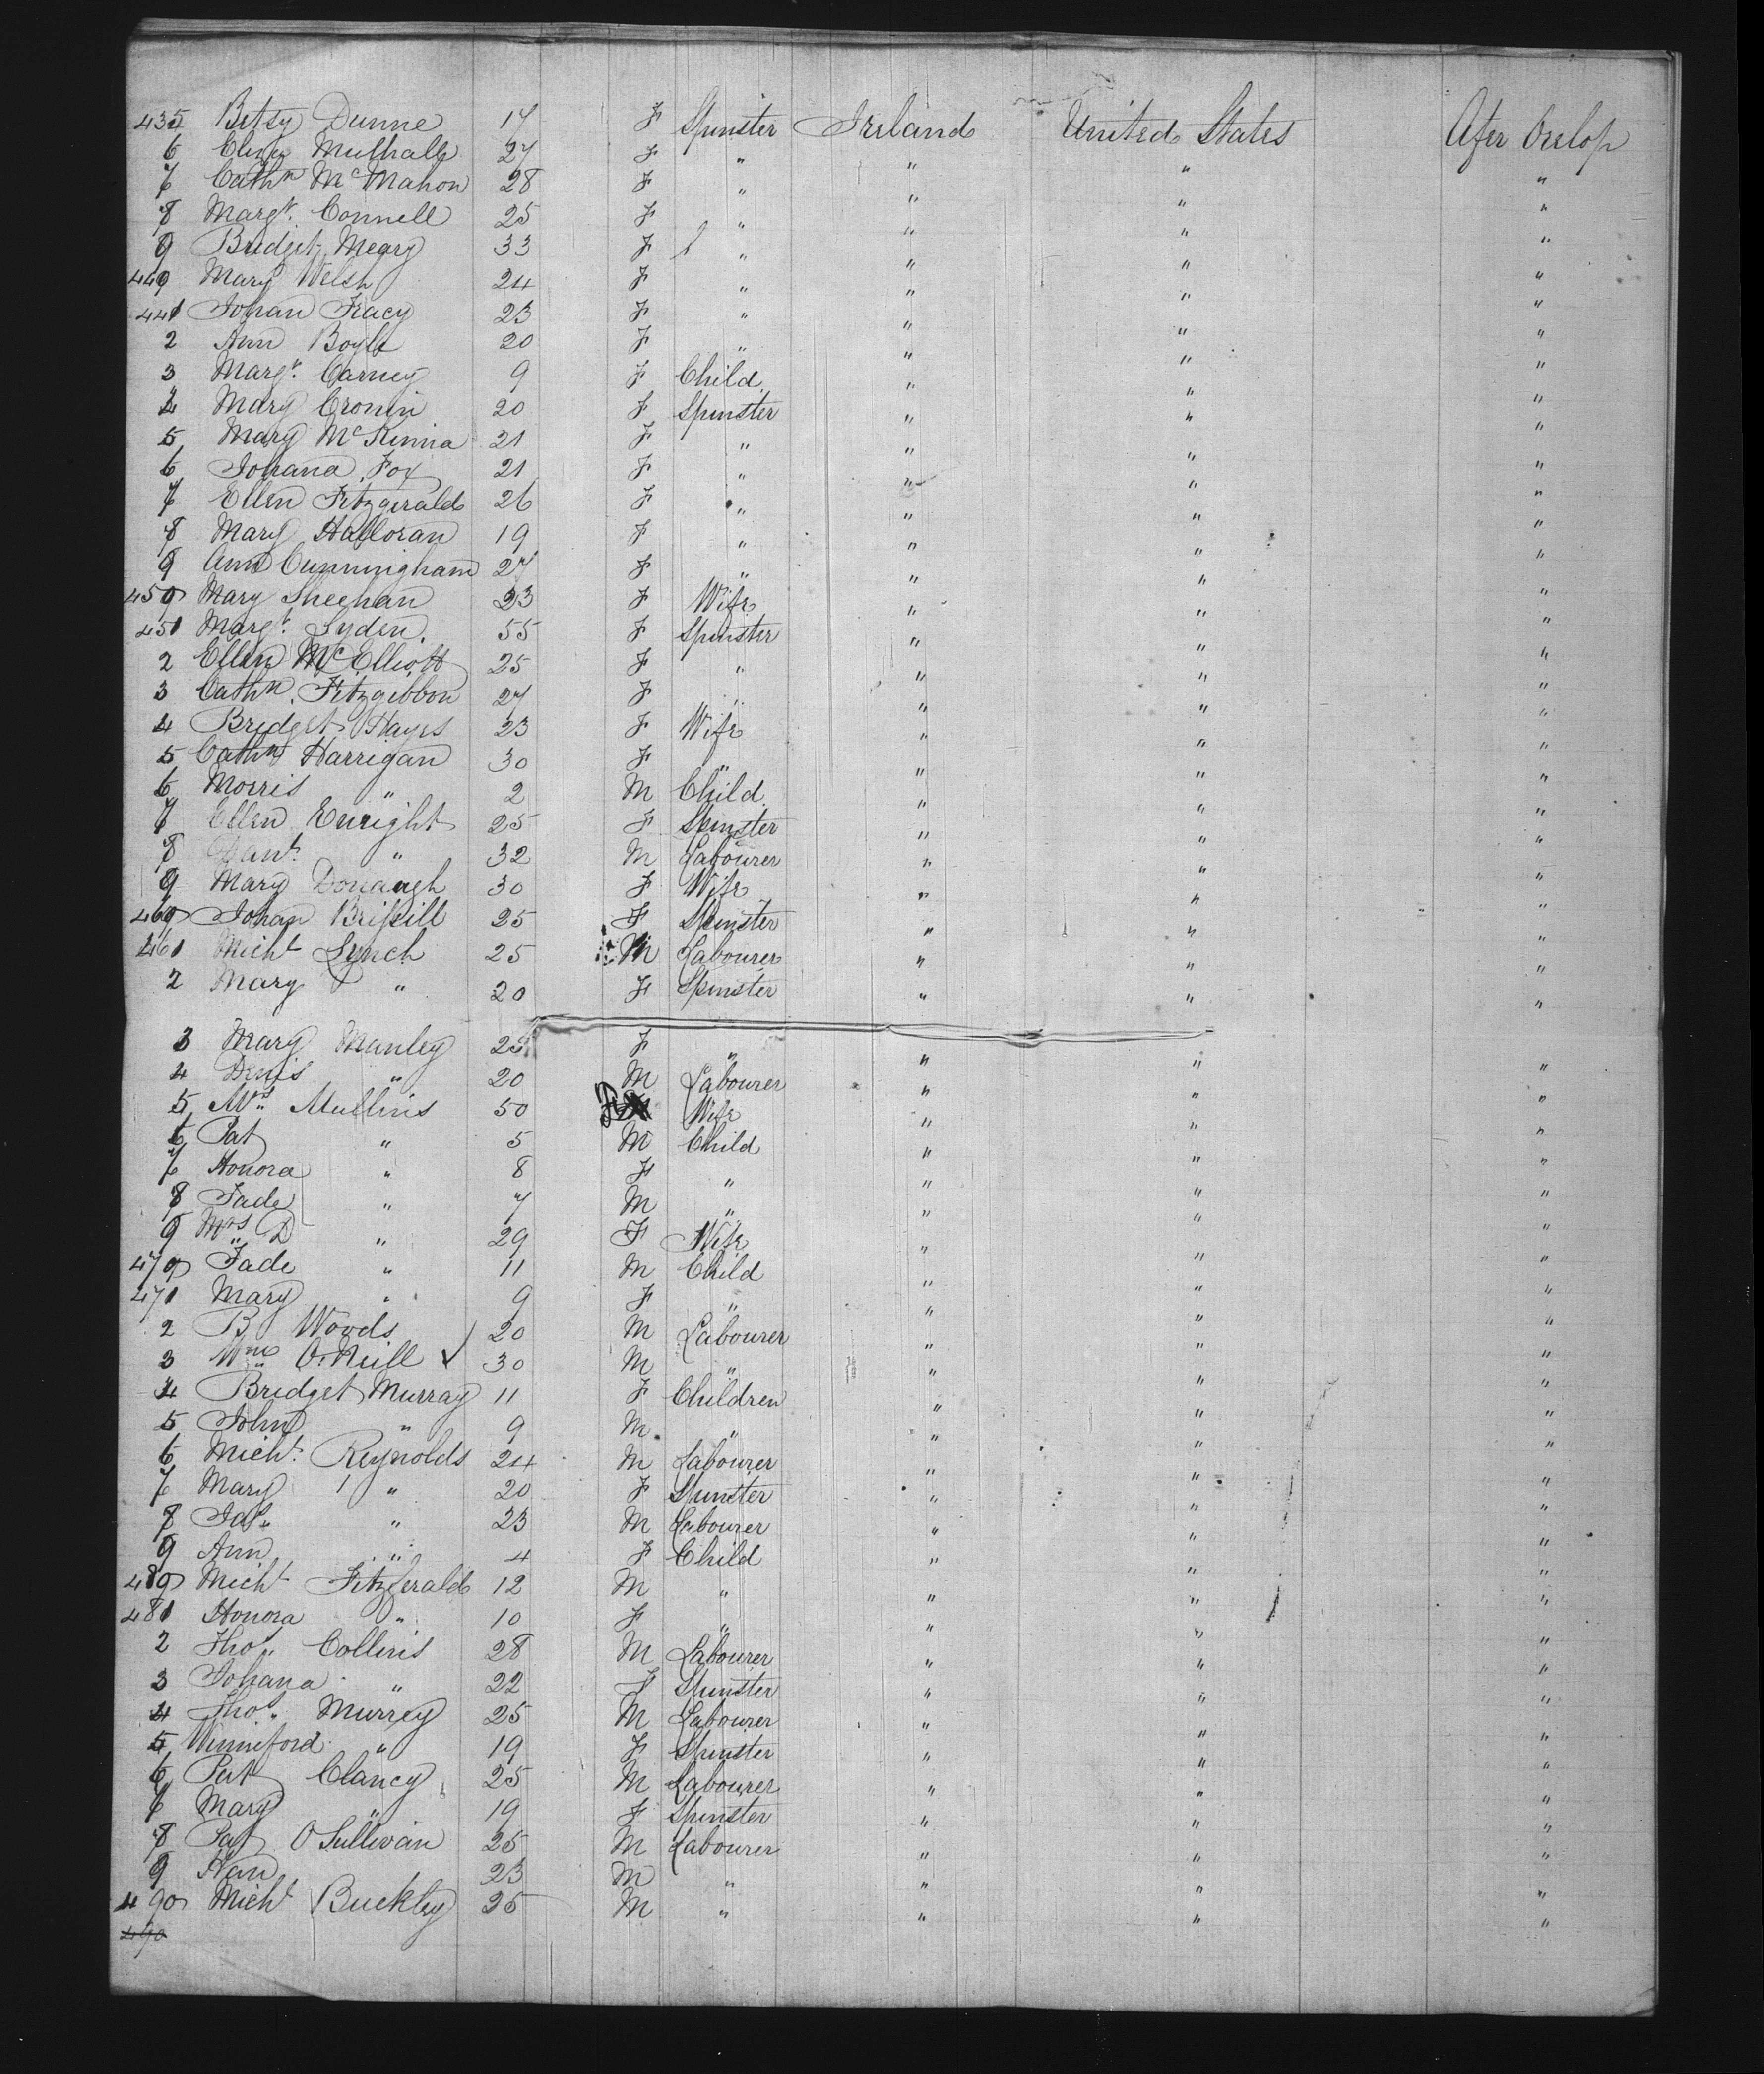 435 Betsy Dunne 17 F Spinster Ireland United States After Orelop
6 Eliza Mulhall 27 F " " " "
7 Cathn McMahon 28 F " " " "
8 Margt. Connell 25 F " " " "
9 Bridget Meary 33 F " " " "
440 Mary Welsh 24 F " " " "
441 Johan Tracy 23 F " " " "
2 Ann Boyle 20 F " " " "
3 Margt. Carney 9 F Child " " "
4 Mary Cronin 20 F Spinster " " "
5 Mary McKinna 21 F " " " "
6 Johana Fox 21 F " " " "
7 Ellen Fitzgerald 26 F " " " "
8 Mary Halloran 19 F " " " "
9 Ann Cunningham 27 F " " " "
450 Mary Sheehan 23 F Wife " " "
451 Margt. Lyden 55 F Spinster " " "
2 Ellen McElliott 25 F " " " "
3 Cathn. Fitzgibbon 27 F " " " "
4 Bridget Hayes 23 F Wife " " "
5 Cathn Harrigan 30 F " " " "
6 Morris " 2 M Child " " "
7 Ellen Enright 25 F Spinster " " "
8 " 32 M Labourer " " "
9 Mary Donaugh 30 F Wife " " "
460 Johan 25 F Spinster " " "
461 Michl Lynch 25 M Labourer " " "
2 Mary " 20 F Spinster " " "
3 Mary Manley 25 F " " " "
4 Denis " 20 M Labourer " " "
5 Mrs Mullins 50 F Wife " " "
6 Pat " 5 M Child " " "
7 Honora " 8 F " " " "
8 Tade " 7 M " " " "
9 Mrs D " 29 F Wife " " "
470 Tade " 11 M Child " " "
471 Mary " 9 F " " " "
2 B Woods 20 M Labourer " " "
3 Wm O'Neill 30 M " " " "
4 Bridget Murray 11 F Children " " "
5 John " 9 M " " " "
6 Michl. Reynolds 24 M Labourer " " "
7 Mary " 20 F Spinster " " "
8 Jas. " 23 M Labourer " " "
9 Ann " 4 F Child " " "
480 Michl Fitzgerald 12 M " " " "
481 Honora " 10 F " " " "
2 Thos. Collins 28 M Labourer " " "
3 Johana " 22 F Spinster " " "
4 Thos. Murrey 25 M Labourer " " "
5 Winneford " 19 F Spinster " " "
6 Pat Clancy 25 M Labourer " " "
7 Mary " 19 F Spinster " " "
8 Pat O Sullivan 25 M Labourer " " "
9 23 M " " " "
490 Michl Buckley 25 M " " " "
490